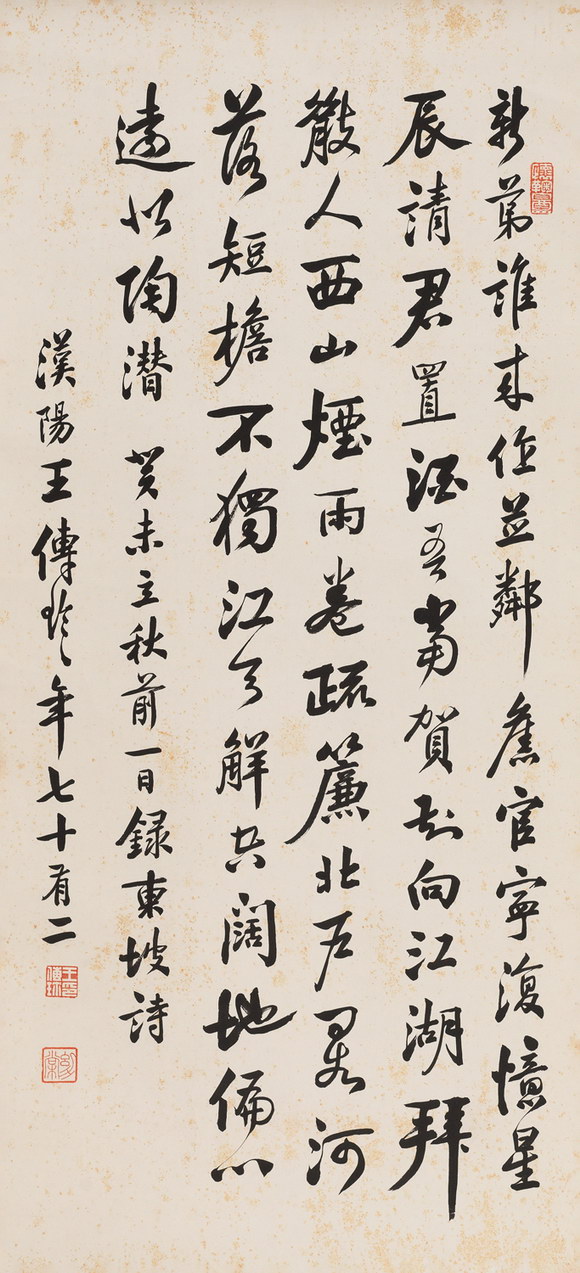 新第誰來作並鄰舊官寧復憶星
辰請君置酒吾當賀知向江湖拜
散人西山煙雨卷疏簾北戶星河
落短檐不獨江天解空闊地偏心
遠似陶潛 癸未立秋前一日錄東坡詩
漢陽王傳珍年七十有二